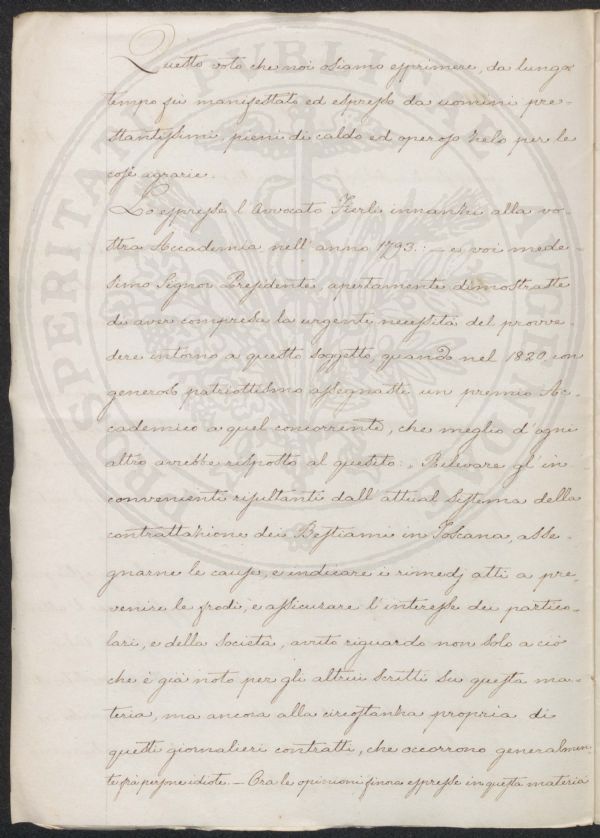 Questo voto che noi osiamo esprimere, da lungo
tempo fu manifestato ed espresso da uomini pre-
stantissimi, pieni di caldo ed operoso zelo per le
cose agrarie.
Lo espresse l'Avvocato Fierli innanzi alla vo-
stra Accademia nell'anno 1793: — e voi mede-
simo Signor Presidente, apertamente dimostraste
di aver compresa la urgente necessità del provve-
dere intorno a questo soggetto, quando nel 1820 con
generoso patriottismo assegnasti un premio Ac-
cademico a quel concorrente, che meglio d'ogni
altro avrebbe risposto al quesito: „ Rilevare gl'in-
convenienti risultanti dall'attual sistema della
contrattazione dei Bestiami in Toscana, asse-
gnarne le cause, e indicare i rimedj atti a pre-
venire le frodi, e assicurare l'interesse dei partico-
lari, e della Società, avuto riguardo non solo a ciò
che è già noto per gli altrui scritti su questa ma-
teria, ma ancora alla circostanza propria di
questi giornalieri contratti, che occorrono generalmen-
te frà persone idiote. — Ora le opinioni finora espresse in questa materia
PROSPERITATI PUBLICAE AUGENDAE